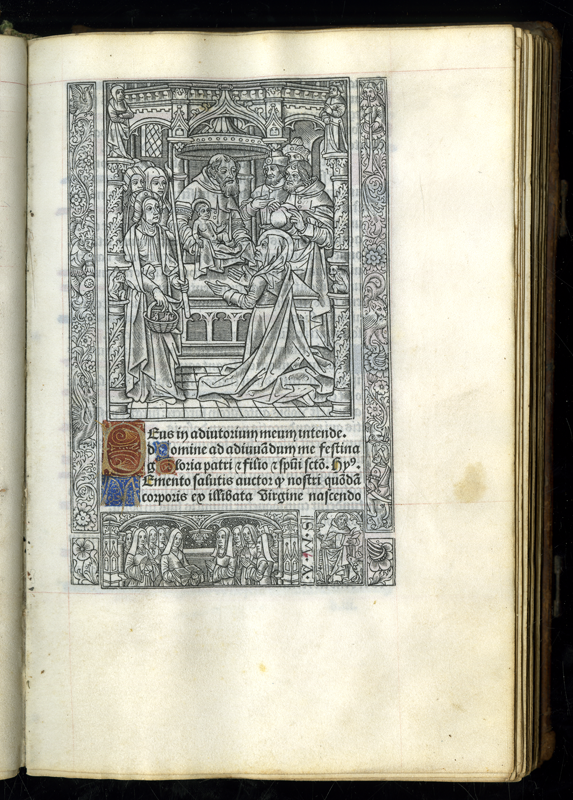 DEus in adiutorium meum intende.
dOmine ad adiuuãdum me festina
gloria patri ⁊ filio ⁊ spũi sctõ. Hyꝰ.
MEmento salutis auctor ꝙ nostri quõdã
corporis ex illibata Virgine nascendo